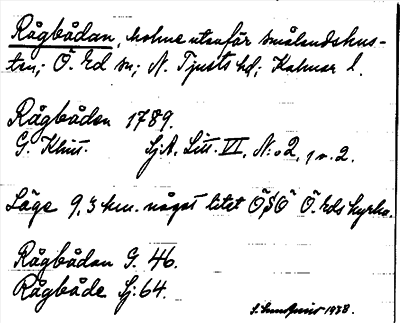 Rågbådan, holme utanför smålandskus-
ten; Ö. Ed sn; N. Tjusts hd; Kalmar l.
Rågbåden 1789.
G. Klint. SjA. Litt. VI, N:o 2, 1 v. 2.
Läge 9,3 km. något litet ÖSÖ Ö. Eds kyrka.
Rågbådan G. 46.
Rågbåde Sj. 64.
1938.